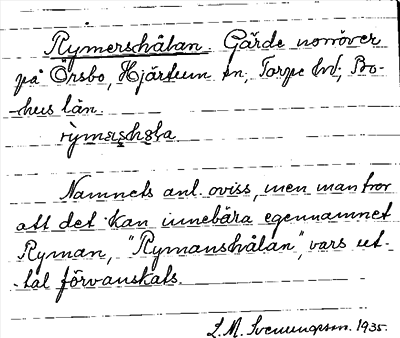 Rymershålan. Gärde norröver
på Örsbo, Hjärtum sn, Torpe hd, Bo-
hus län.
Namnets anl. oviss, men man tror
att det kan innebära egennamnet
Ryman, "Rymanshålan", vars ut-
tal förvanskats.
L. M. Svenungsson. 1935.